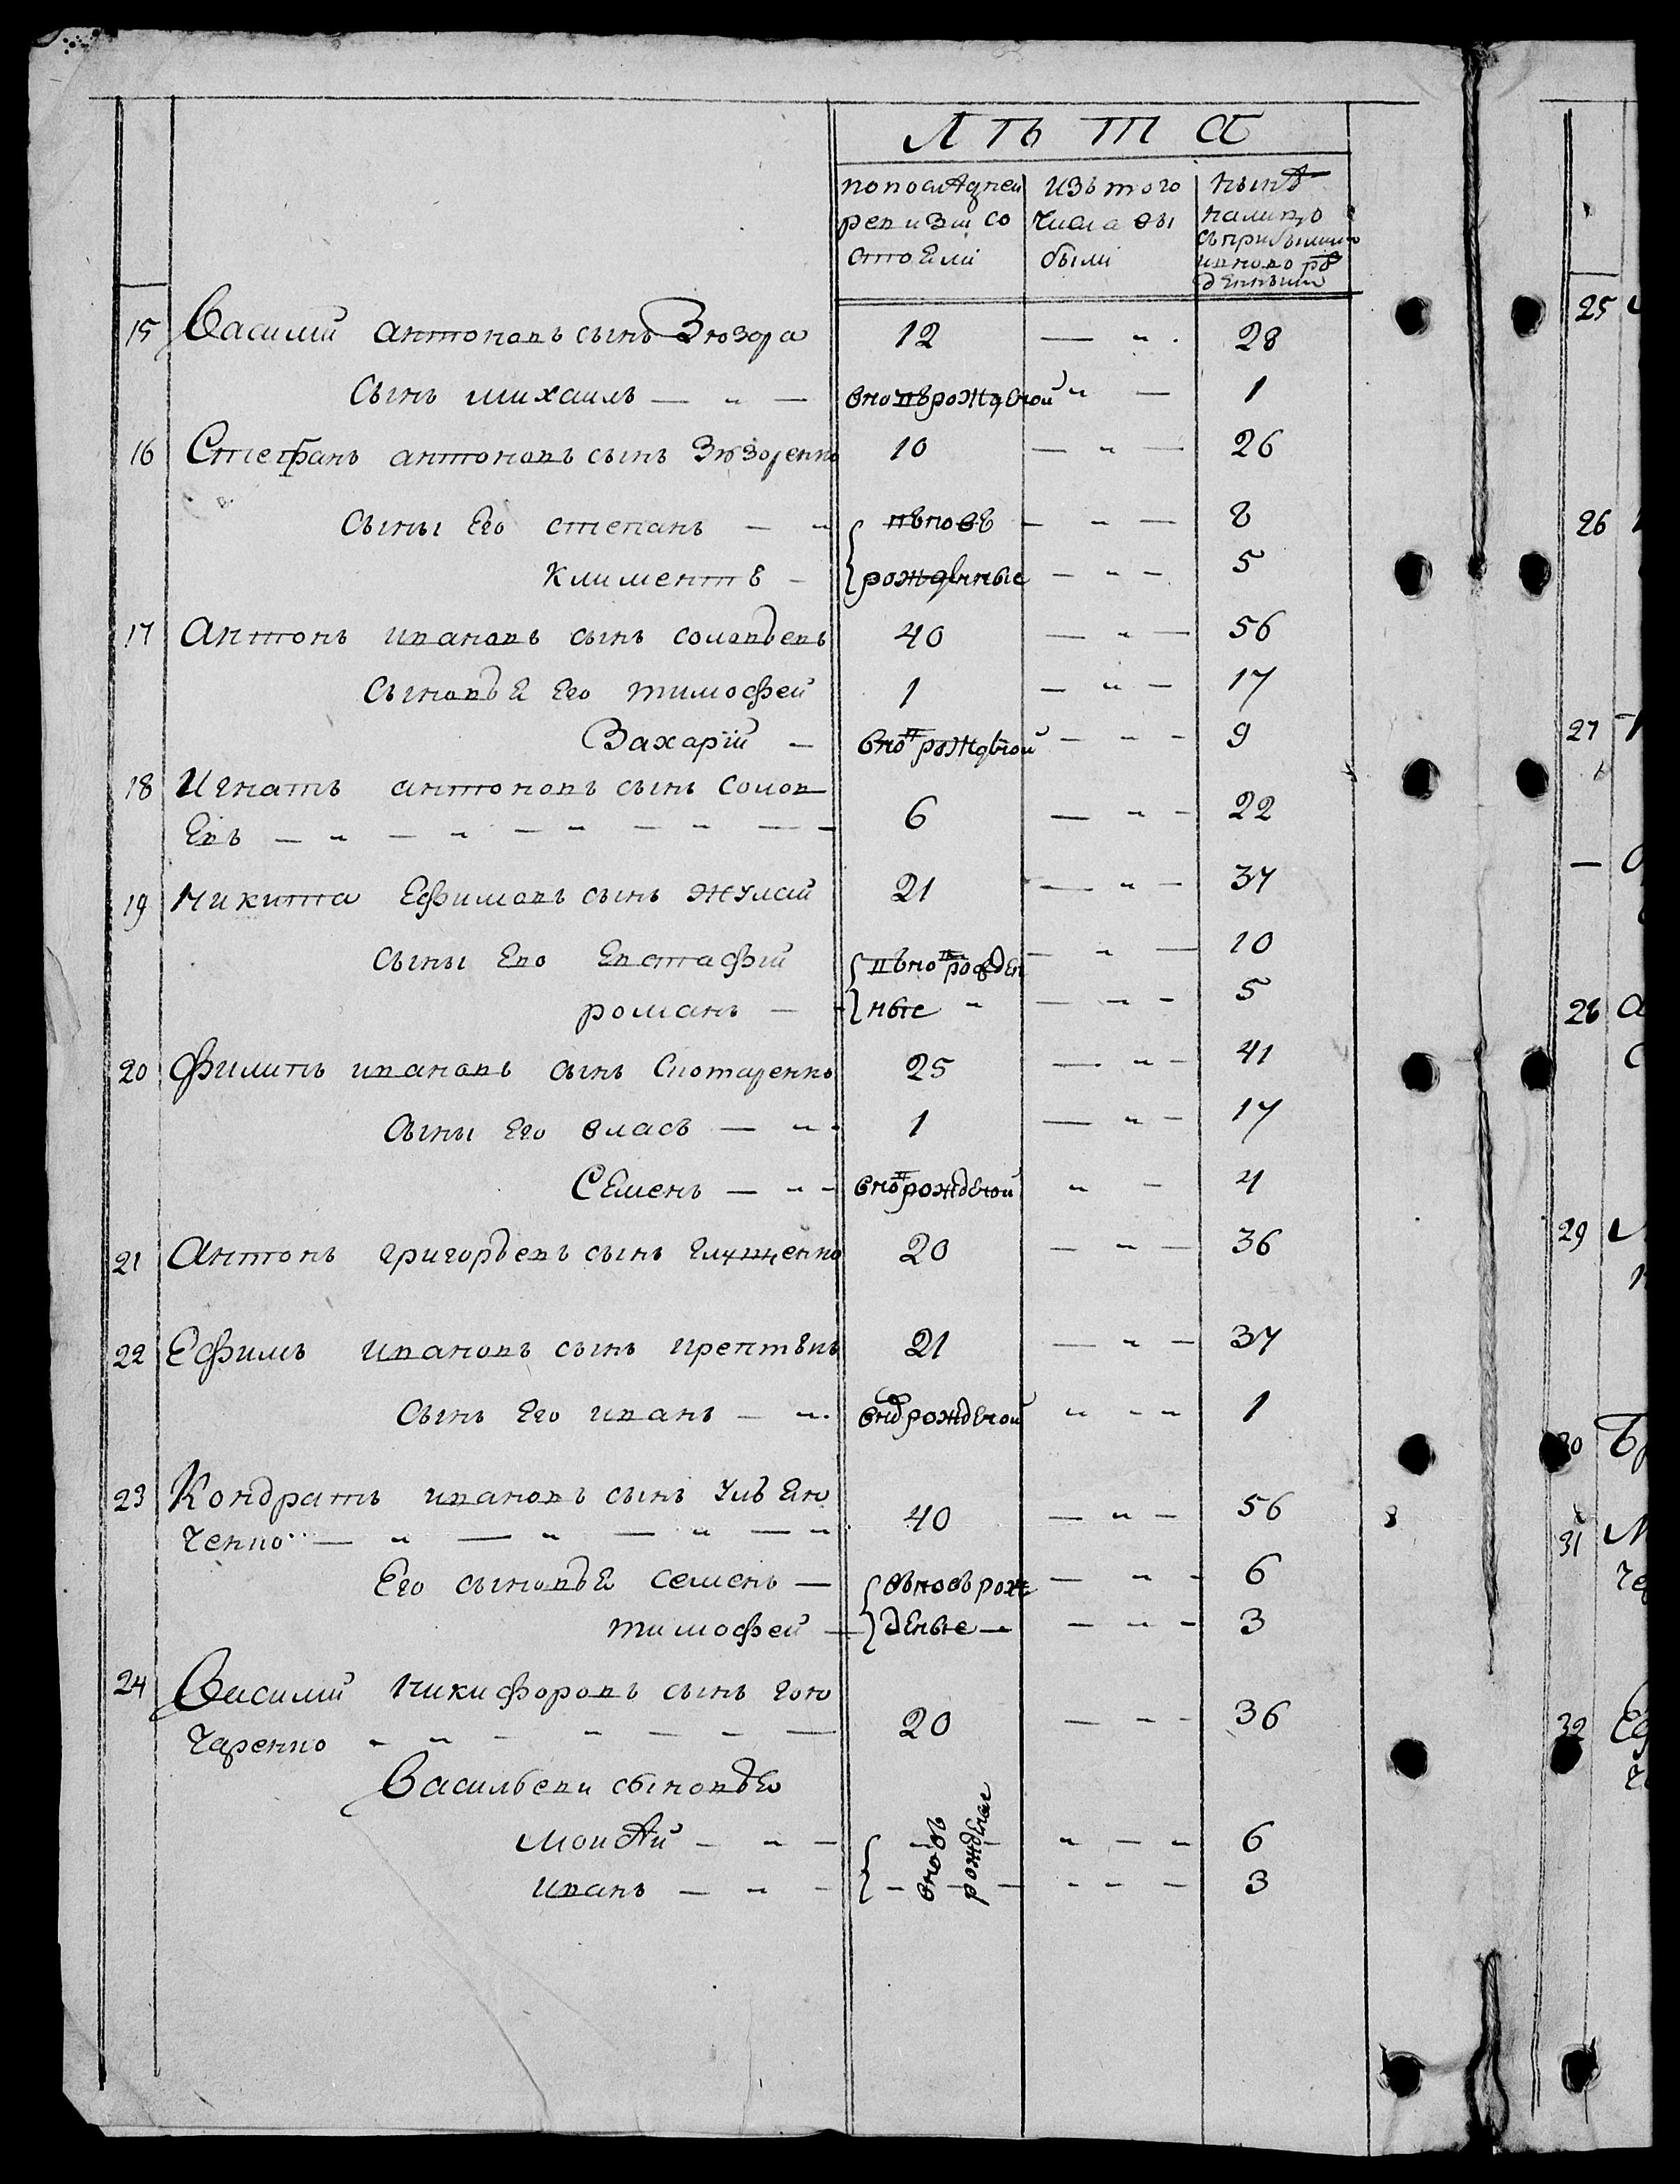 Лѣта
попослѣдней ревизiи состоели
изътого числа выбыли
нынѣ налицо съприбылими ивново рожденными
15 Василiй антоновъ сынъ Зюзора 12 — „ 28
Сынъ михаилъ — „ — вновърожденой „ — 1
16 Стефанъ антоновъ сынъ Зюзоренко 10 — „ — 26
Сыны Его степанъ — „ въновь — „ — 8
климентъ — рожденные — „ — 5
17 Антонъ ивановъ сынъ соловьевъ 40 — „ — 56
Сыновьѐ Его тимофей 1 — „ — 17
Захарiй — вновърожденой — „ — 9
18 Игнатъ антоновъ сынъ Солов
Евъ — „ — „ — „ — „ — 6 — „ — 22
19 Никита Ефимовъ сынъ жулай 21 — „ — 37
сыны Ево Евстафiй въновърожден — „ — 10
романъ — ные „ — „ — 5
20 Филипъ ивановъ сынъ 25 — „ — 41
Сыны Его власъ — „ 1 — „ — 17
Семенъ — „ — вновърожденой „ — 4
21 Антонъ григорьевъ сынъ 20 — „ — 36
22 Ефимъ ивановъ сынъ 21 — „ — 37
Сынъ Его иванъ — „ вновърожденой „ — „ 1
23 Кондратъ ивановъ сынъ
ченко — „ — „ — „ — „ 40 — „ — 56
Его сыновьѐ семенъ — вьновьрож — „ — 6
тимофей — деные — — „ — 3
24 Василий никифоровъ сынъ гон
чаренко „ „ — „ — „ — 20 — „ — 36
Васильеви сыновьѐ
Моисѣй — „ — вновь „ — „ 6
иванъ — „ — рожденые „ „ — 3
25
26
27
28
29
30
31
32